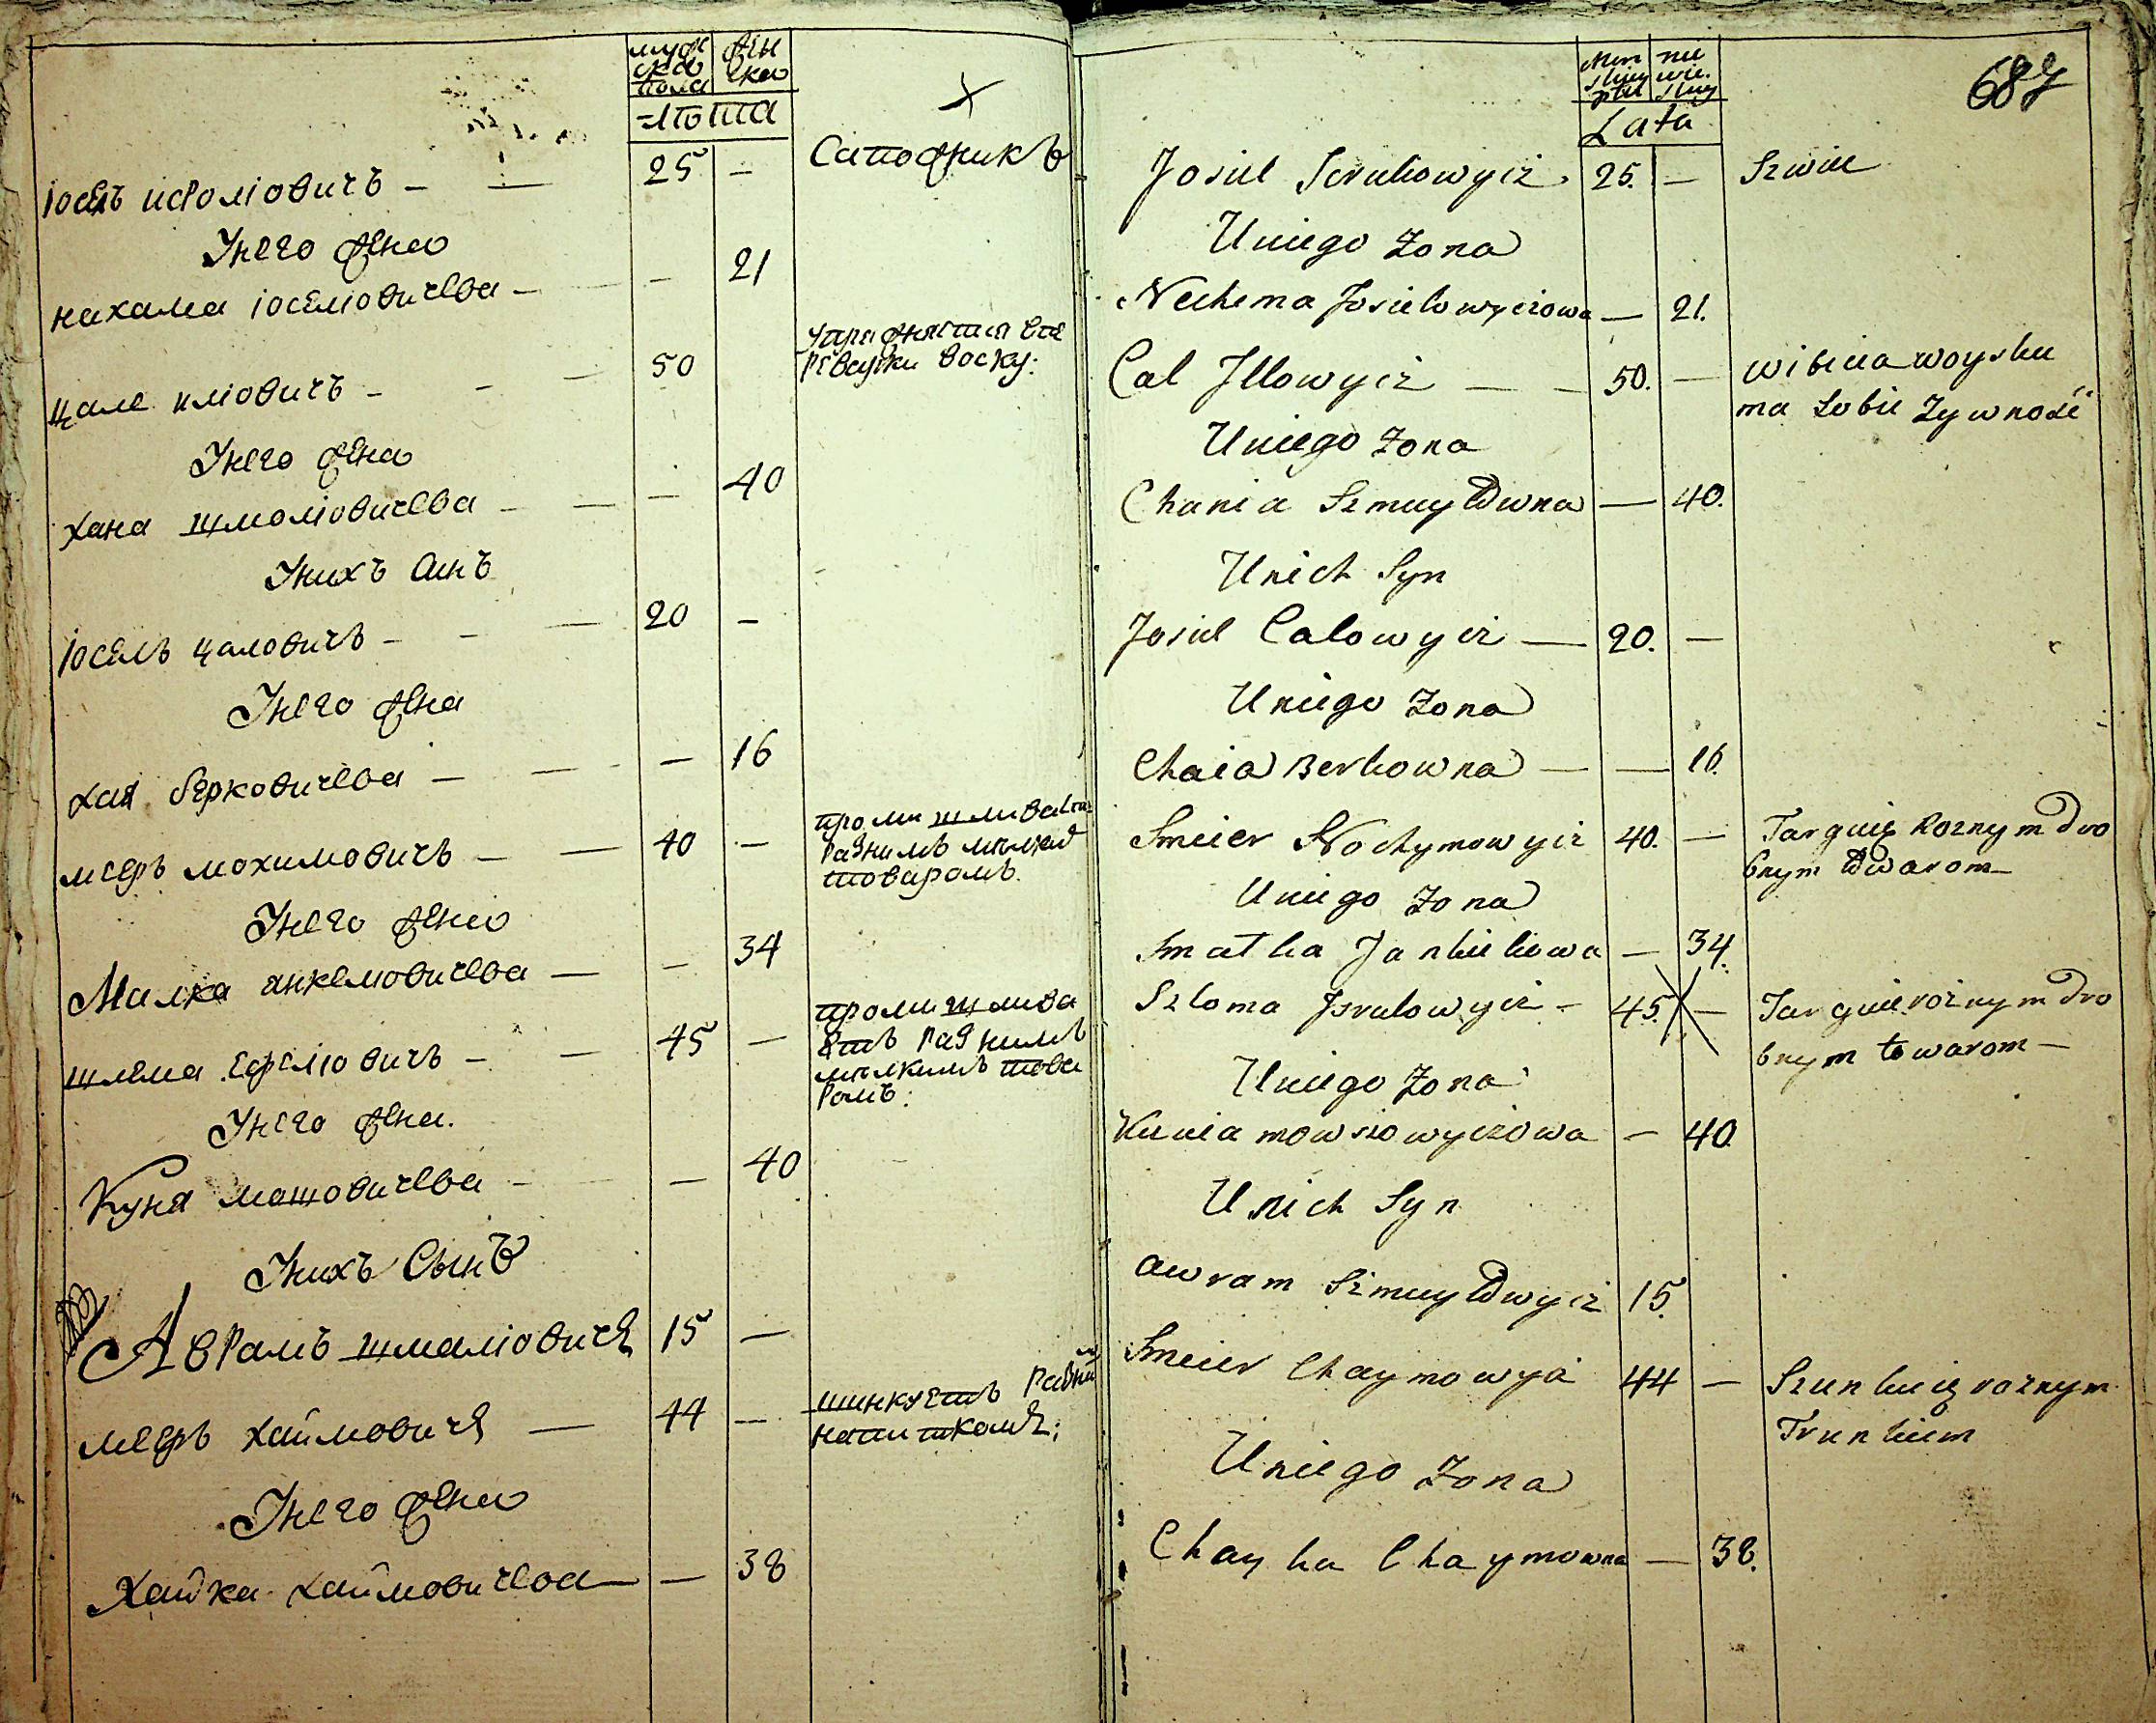 муж
ска
пола
жен
ска
лѣта
іосель исроліовичъ - — 25 - Сапожникъ
Унего жена
нахама іоселіовичева - - 21
цале иліовичъ - - — 50
упражняется
воску:
Унего жена
хана шмоліовичева - — — 40
Унихъ Синъ
іосель цаловичъ - - — 20 -
Унего жена
хая берковичева - — — 16
мееръ мохимовичъ - — 40 -
промишливаетъ
разнимъ мѣлким
товаромъ.
Унего жена
Малка янкелювичева — - 34
шлема - — 45 —
промишлива
етъ разнимъ
мѣлкимъ това
ромъ:
Унего жена.
Куня мошовичева - — 40
Унихъ Сынъ
Аврамъ шмаліовичъ 15 —
мееръ хаймовичъ — 44 —
шинкуетъ разни
напиткомъ;
Унего жена
Хайка хаймовичева — — 38
687
Lata
Josiel Srulowycz. 25. — Szwiec
Uniego Zona
Nechema Josielowyczowa — 21.
Cal Jllowycz — - 50. —
woysku
ma Sobie Zywność
Uniego Zona
Chania Szmuylowna — 40.
Unich Syn
Josiel Calowycz — 20. —
Uniego Zona
Chaia Berkowna — — 16.
Smeier Nochymowycz 40. —
Targuię Roznym dro
bnym towarom —
Uniego Zona
Smalka Jankielowa — 34.
Szloma Jsrulowycz - 45. —
Targuie roznym dro
bnym towarom —
Uniego Zona
Kunia mowszowyczowa — 40
Unich Syn
awram Szmuylowycz 15.
Smeier Chaymowycz 44 —
Szunkuię roznym
Trunkiem
Uniego Zona
Chayka Chaymowna — 38.